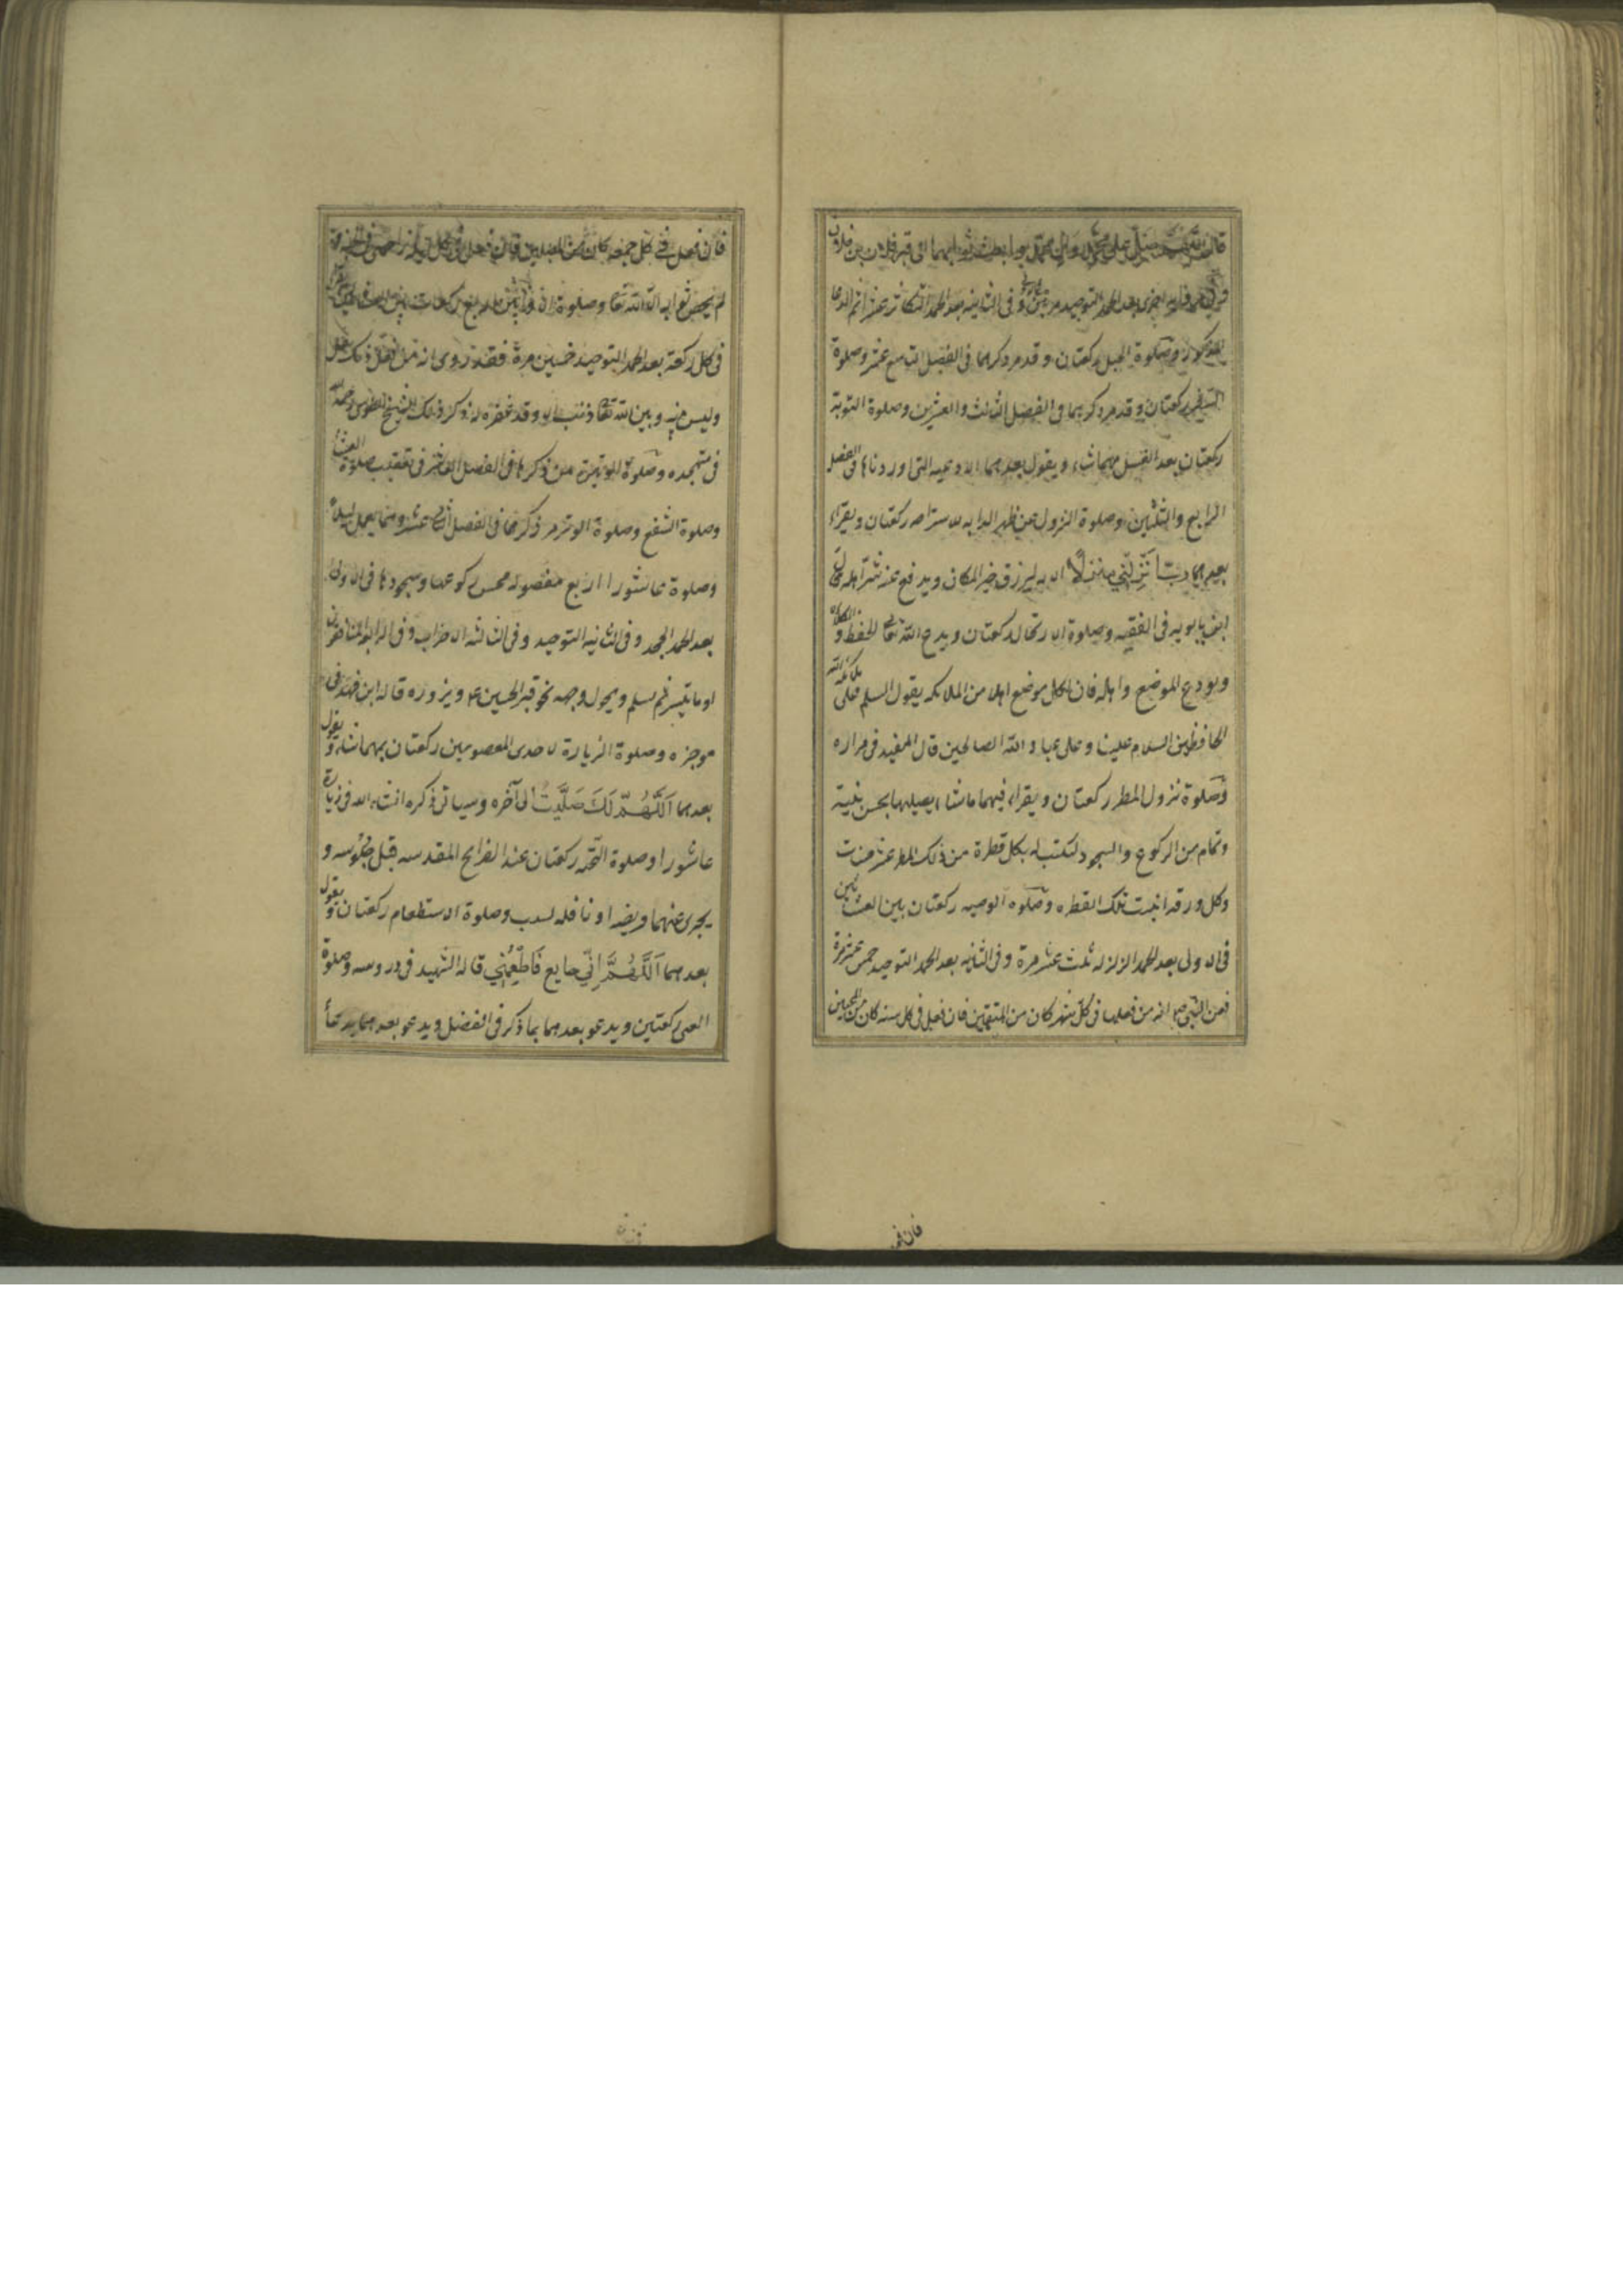 قال اللهم صل على محمد وآل محمد وابعث ثوابهما الى قبر فلان بن فلان
بعد الحمد التوحيد مرتين وفى الثانيه بعد الحمد التكاثر عشرا ثم الدعا
المذكور وصلوة الحبل ركعتان وقد مر ذكرهما فى الفصل التاسع عشر وصلوة
السفر ركعتان وقد مر ذكرهما فى الفصل الثالث والعشرين وصلوة التوبة
ركعتان بعد الغسل مهما شاء ويقول بعدهما الادعيه التى اوردناها فى الفصل
الرابع والثلثين وصلوة النزول عن ظهر الدابه للاستراحه ركعتان ويقراء
بعدهما رب انزلنى منزلا الايه ليرزق خير المكان ويدفع عنه شر اهله قال
ابن بابويه فى الفقيه وصلوة الارتحال ركعتان ويدع الله تعالى الحفظ والكلاه
ويودع الموضع واهله فان لكل موضع اهلا من الملائكه يقول السلم على ملائكة الله
الحافظين السلام علينا وعلى عباد الله الصالحين قال المفيد فى مزاره
وصلوة نزول المطر ركعتان ويقراء فيهما ماشاء يصليها بحسن نية
وتمام من الركوع والسجود لتكتب له بكل قطرة من ذلك المطر عشر حسنات
وكل ورقه انبتت تلك القطره وصلوه الوصيه ركعتان بين العشائين
فى الاولى بعد الحمد الزلزله ثلث عشر مرة وفى الثانيه بعد الحمد التوحيد خمس عشر مرة
فعن النبى صلعم انه من فعلها فى كل شهر كان من المتقين فان فعل فى كل سنه كان من المحسنين
فان فعل
فان فعل فى كل جمعه كان من المصلين فان فعل فى كل ليله زاحمنى فى الجنه و
لم يحص ثوابه الا الله تعا وصلوة اربع ركعات بين العشائين
فى كل ركعة بعد الحمد التوحيد خمسين مرة فقد روى انه من فعل ذلك انفتل
وليس بينه وبين الله تعا ذنب الا وقد غفره له ذكر ذلك الشيخ الطوسى رحمه الله
فى متهجده وصلوة الوتيرة من ذكرها فى الفصل العاشر فى تعقيب صلوة العشا
وصلوة الشفع وصلوة الوتر مر ذكرهما فى الفصل الثانى عشر وفيما يعمل ليلا
وصلوة عاشورا اربع مفصوله محسن ركوعها وسجودها فى الاولى
بعد الحمد الجحد وفى الثانيه التوحيد وفى الثالثه الاحزاب وفى الرابعه المنافقون
او ما تيسر ثم يسلم ويحول وجهه نحو قبر الحسين ع ويزوره قاله ابن فهد فى
موجزه وصلوة الزيارة لاحدى المعصومين ركعتان بمهما شاء ويقول
بعدهما اللهم لك صليت الى آخره وسياتى ذكره انشاء الله فى زيارة
عاشورا وصلوة التحيه ركعتان عند الضرايح المقدسه قبل جلوسه و
يجزى عنهما فريضه او نافله لسبب وصلوة الاستطعام ركعتان ويقول
بعدهما اللهم انى جايع فاطعمنى قاله الشهيد فى دروسه وصلوة
الغنى ركعتين ويدعو بعدهما بما ذكر فى الفصل ويدعو بعدهما بدعا